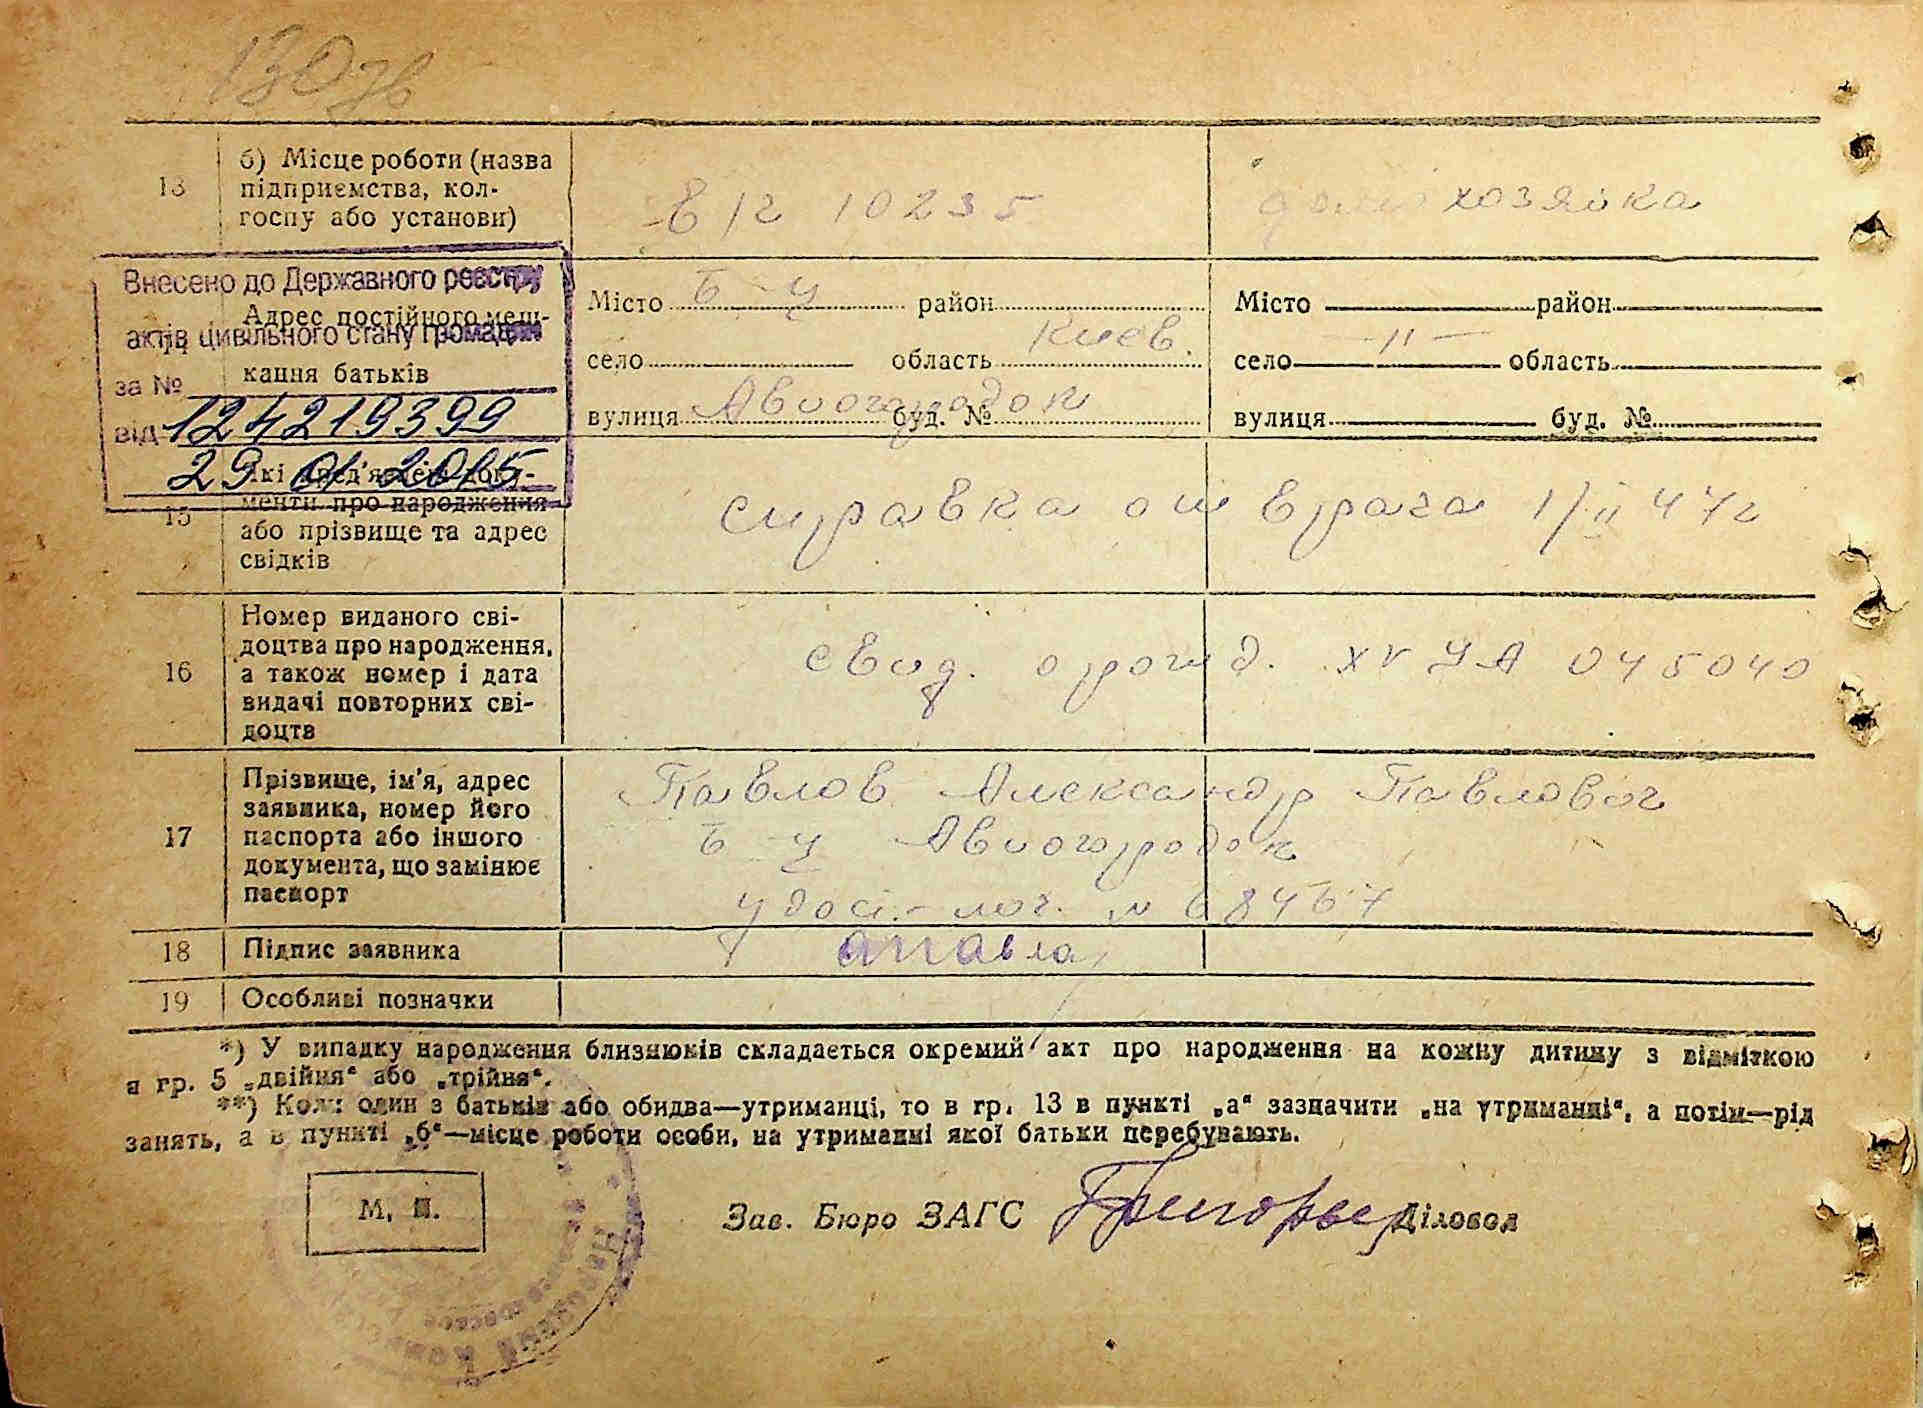 130 зв
13
б) Місце роботи (назва
підприємства, кол-
госпу або установи)
в/г 10235
домохозяйка
Внесено до Державного реєстру
актів цивільного стану громадян
за №
124219399
від
29 01 2015
Адрес постійного меш-
кання батьків
Місто Б-Ц район
село область Киев.
вулиця Авиогородок буд. №
Місто район
село —〃— область
вулиця буд. №
15
Які пред'явлені доку-
менти про народження
або прізвище та адрес
свідків
справка от врача 1/II 47г
16
Номер виданого сві-
доцтва про народження,
а також номер і дата
видачі повторних сві-
доцтв
свид. о рожд. XV УА 045040
17
Прізвище, ім'я, адрес
заявника, номер його
паспорта або іншого
документа, що замінює
паспорт
Павлов Александр Павлович
Б-Ц Авиогородок
удост.-лич. №
18
Підпис заявника
19
Особливі позначки
*) У випадку народження близнюків складається окремий акт про народження на кожну дитину з відміткою
в гр. 5 „двійня“ або „трійня“.
**) Коли один з батьків або обидва—утриманці, то в гр. 13 в пункті „а“ зазначити „на утриманні“, а потім—рід
занять, а в пункті „б“—місце роботи особи, на утриманні якої батьки перебувають.
М. П.
Зав. Бюро ЗАГС
Діловод